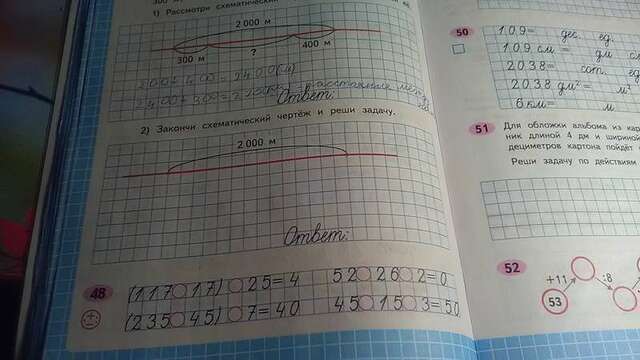 1) Рассмотри схематический
2 000 м
300 м ? 400 м
Ответ:
2) Закончи схематический чертёж и реши задачу.
2 000 м
Ответ:
48
(117○17)○25=4 52○26○2=0
(235○45)○7=40 45○15○3=50
50
109= дес. ед.
109 см= дм см
2038= сот. ед.
2038 дм²= м²
6 км= м
51
Для обложки альбома из кар
ник длиной 4 дм и шириной
дециметров картона пойдёт
Реши задачу по действиям
52
+11 :8
53